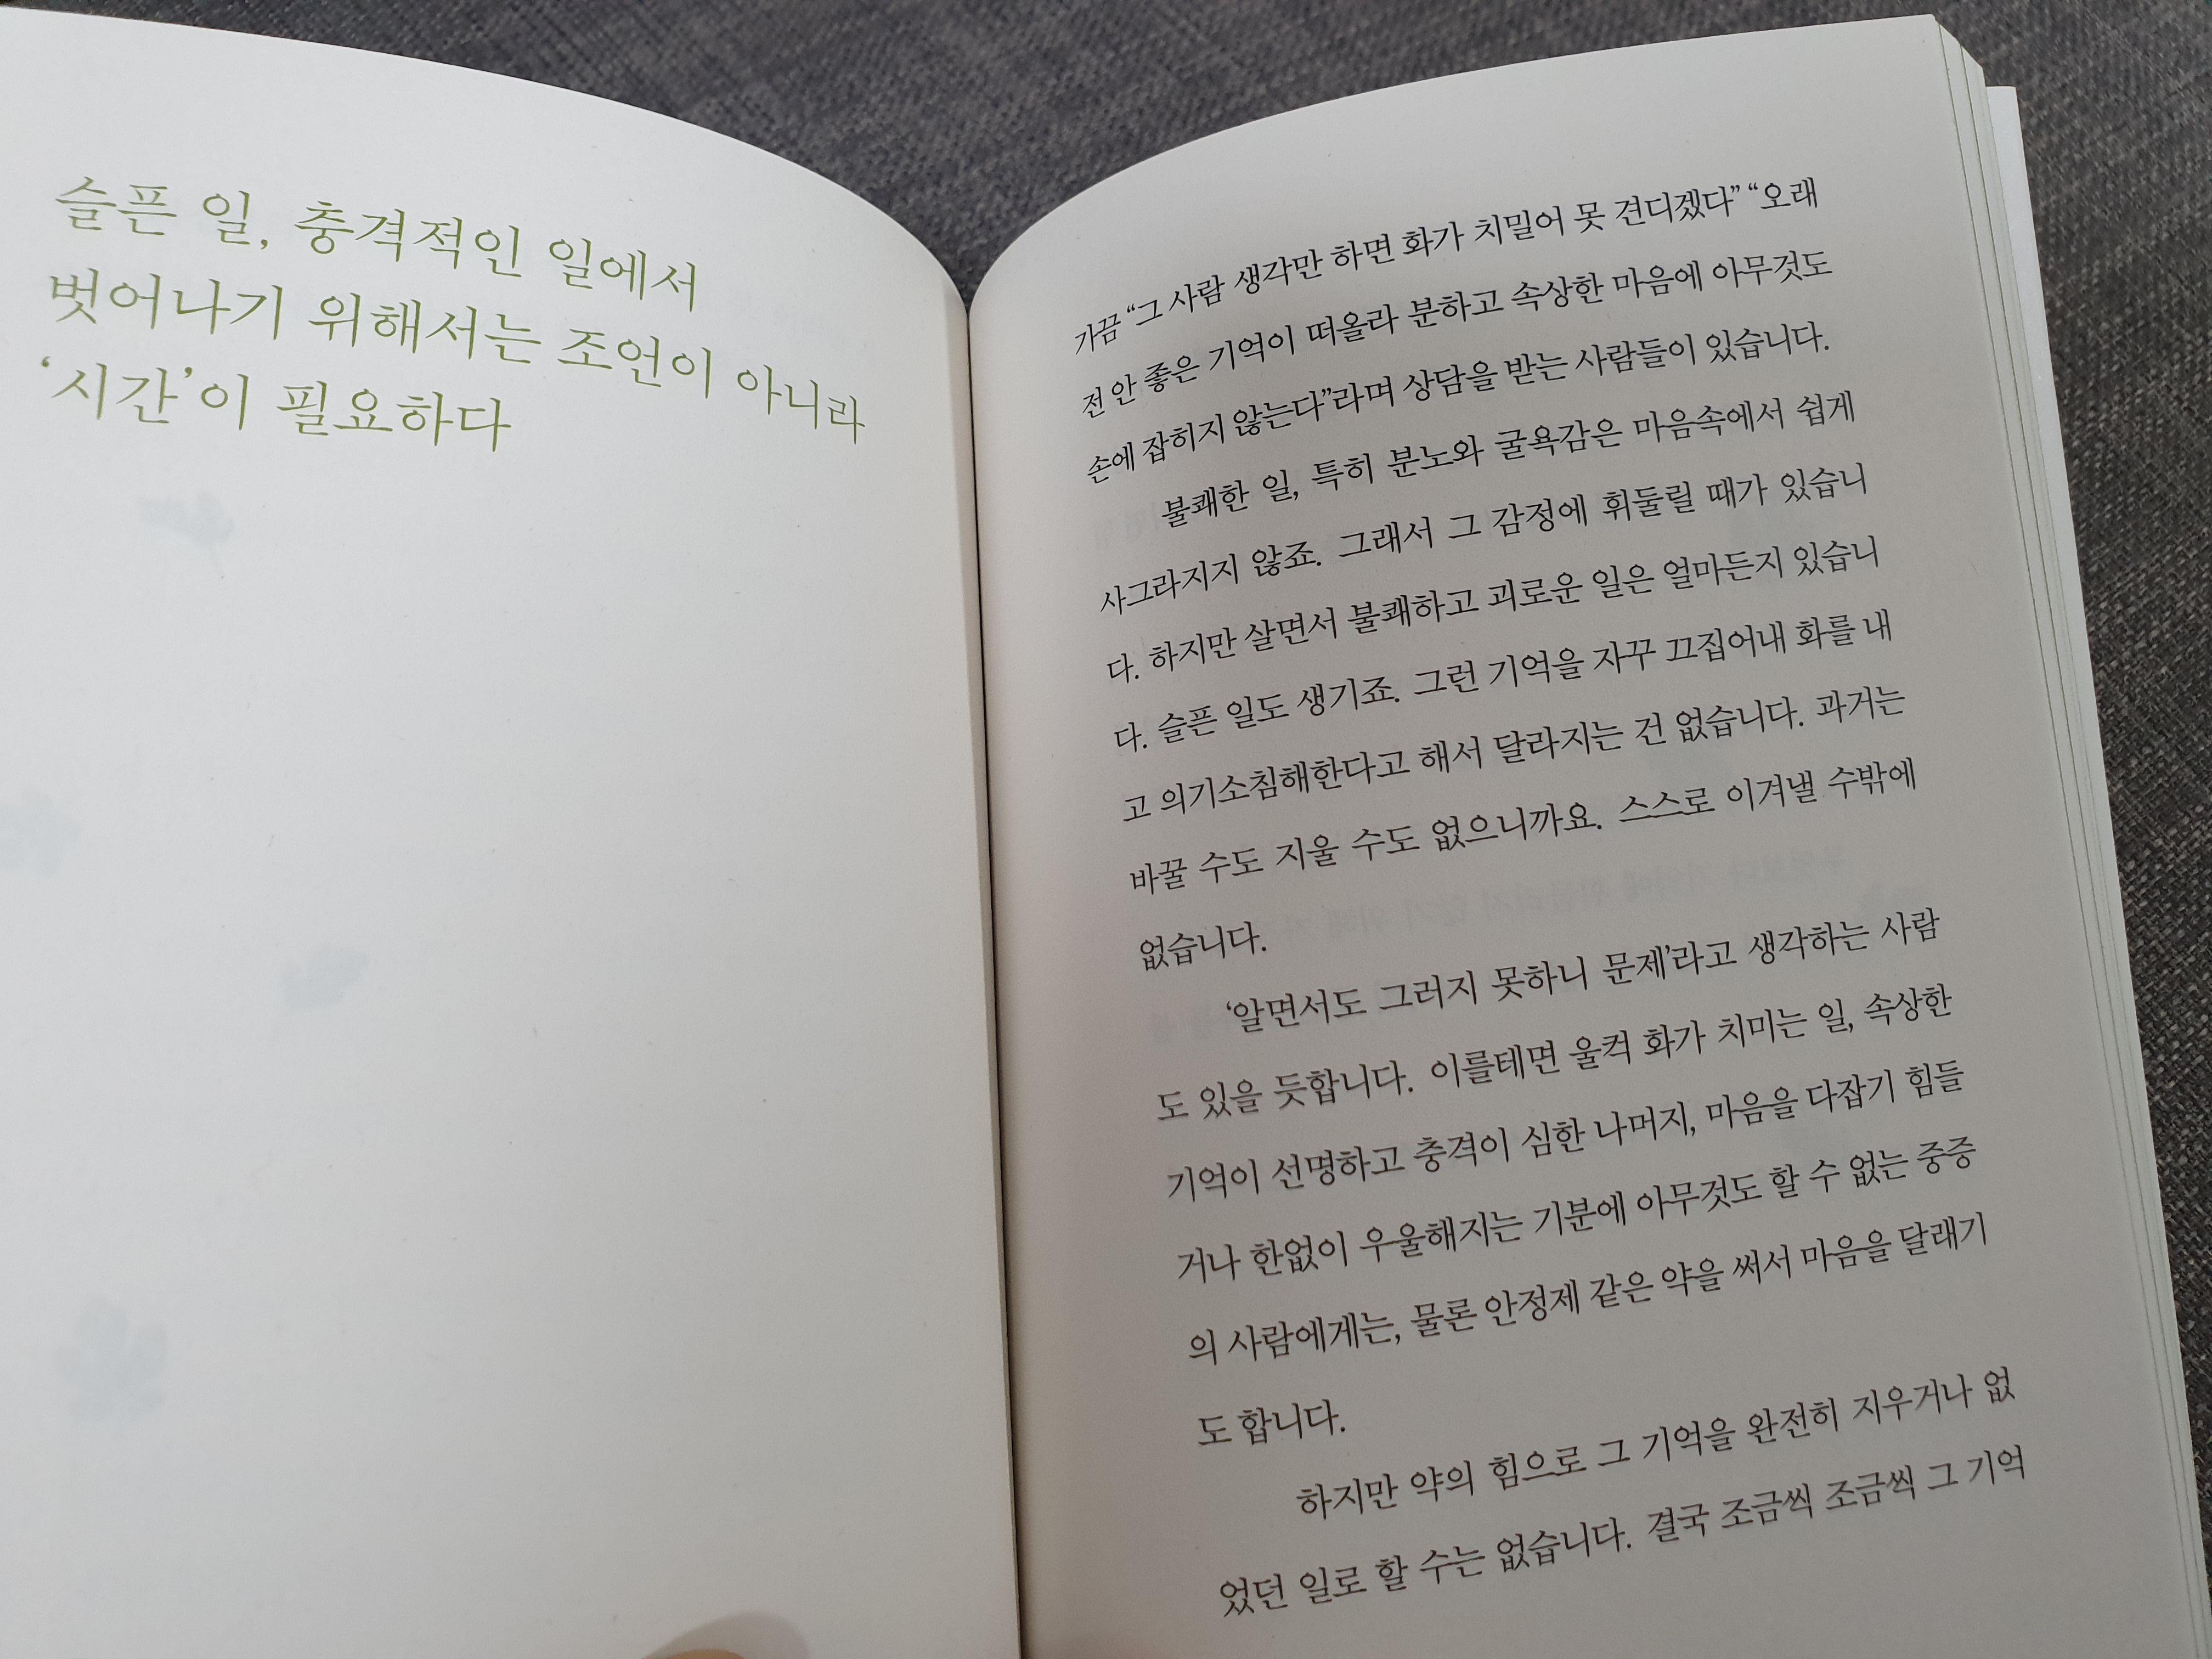 슬픈 일, 충격적인 일에서
벗어나기 위해서는 조언이 아니라
‘시간’이 필요하다
가끔 “그 사람 생각만 하면 화가 치밀어 못 견디겠다” “오래
전 안 좋은 기억이 떠올라 분하고 속상한 마음에 아무것도
손에 잡히지 않는다”라며 상담을 받는 사람들이 있습니다.
불쾌한 일, 특히 분노와 굴욕감은 마음속에서 쉽게
사그라지지 않죠. 그래서 그 감정에 휘둘릴 때가 있습니
다. 하지만 살면서 불쾌하고 괴로운 일은 얼마든지 있습니
다. 슬픈 일도 생기죠. 그런 기억을 자꾸 끄집어내 화를 내
고 의기소침해한다고 해서 달라지는 건 없습니다. 과거는
바꿀 수도 지울 수도 없으니까요. 스스로 이겨낼 수밖에
없습니다.
‘알면서도 그러지 못하니 문제’라고 생각하는 사람
도 있을 듯합니다. 이를테면 울컥 화가 치미는 일, 속상한
기억이 선명하고 충격이 심한 나머지, 마음을 다잡기 힘들
거나 한없이 우울해지는 기분에 아무것도 할 수 없는 중증
의 사람에게는, 물론 안정제 같은 약을 써서 마음을 달래기
도 합니다.
하지만 약의 힘으로 그 기억을 완전히 지우거나 없
었던 일로 할 수는 없습니다. 결국 조금씩 조금씩 그 기억